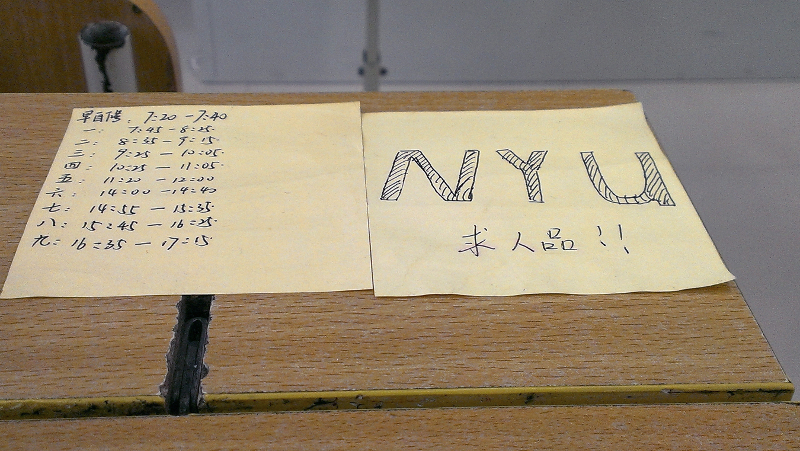 早自修: 7:20 - 7:40
一: 7:45 - 8:25
二: 8:35 - 9:15
三: 9:25 - 10:05
四: 10:25 - 11:05
五: 11:20 - 12:00
六: 14:00 - 14:40
七: 14:55 - 15:35
八: 15:45 - 16:25
九: 16:35 - 17:15
NYU
求人品!!